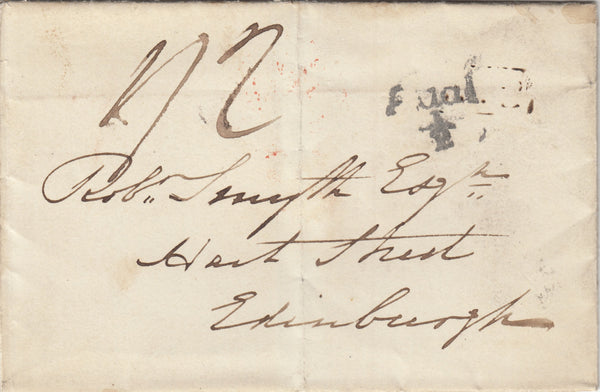 1/2
Addl
½
Robt. Smyth Esqr.
Hart Street
Edinburgh